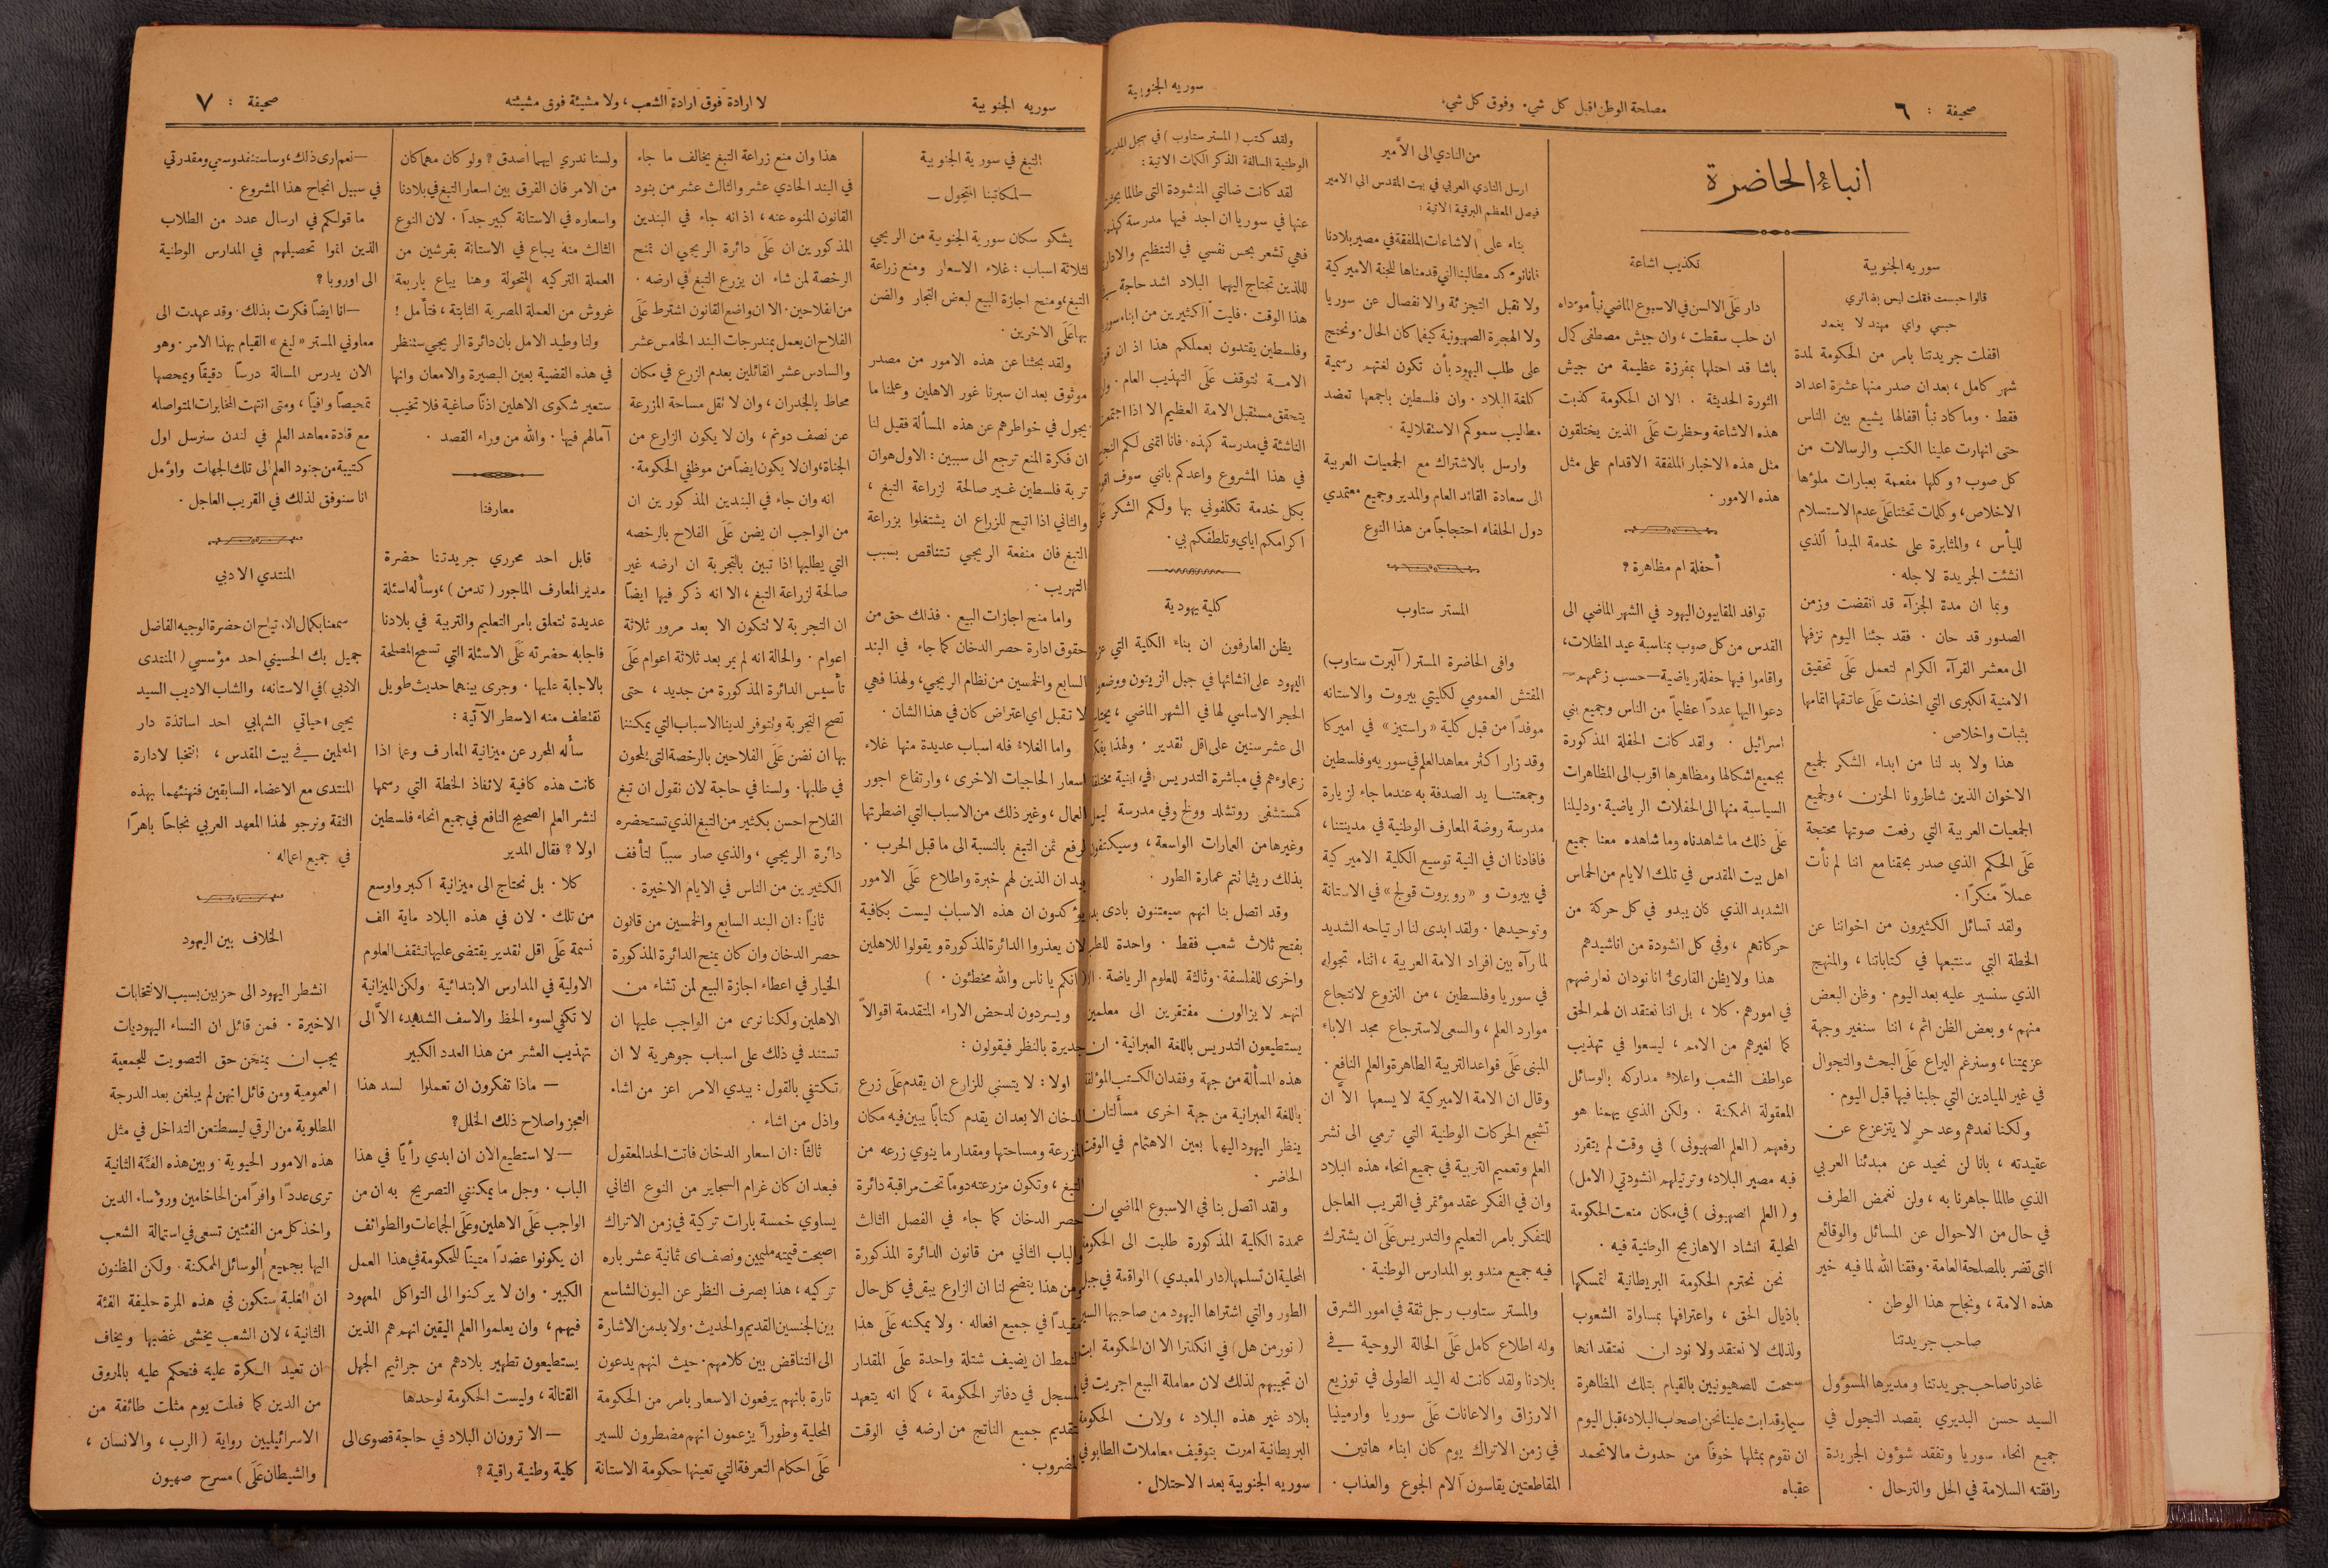 صحيفة : ٦
مصلحة الوطن قبل كل شيء وفوق كل شيء
سوريه الجنوبية
انباء الحاضرة
سوريه الجنوبية
قالوا حبست فقلت ليس بضائري
حبسي واي مهند لا يغمد
اقفلت جريدتنا بامر من الحكومة لمدة
شهر كامل ، بعد ان صدر منها عشرة اعداد
فقط . وما كاد نبأ اقفالها يشيع بين الناس
حتى انهارت علينا الكتب والرسالات من
كل صوب ، وكلها مفعمة بعبارات ملؤها
الاخلاص ، وكلمات تحثنا عَلَى عدم الاستسلام
لليأس ، والمثابرة على خدمة المبدأ الذي
انشئت الجريدة لاجله .
وبما ان مدة الجزآء قد انقضت وزمن
الصدور قد حان . فقد جئنا اليوم نزفها
الى معشر القرآء الكرام لنعمل عَلَى تحقيق
الامنية الكبرى التي اخذت عَلَى عاتقها اتمامها
بثبات واخلاص .
هذا ولا بد لنا من ابداء الشكر لجميع
الاخوان الذين شاطرونا الحزن ، ولجميع
الجمعيات العربية التي رفعت صوتها محتجة
عَلَى الحكم الذي صدر بحقنا مع اننا لم نأت
عملاً منكرًا .
ولقد تسائل الكثيرون من اخواننا عن
الخطة التي سنتبعها في كتاباتنا ، والمنهج
الذي سنسير عليه بعد اليوم . وظن البعض
منهم ، وبعض الظن اثم ، اننا سنغير وجهة
عزيمتنا ، وسنرغم اليراع عَلَى البحث والتجوال
في غير الميادين التي جلبنا فيها قبل اليوم .
ولكنا نعدهم وعد حرٍ لا يتزعزع عن
عقيدته ، بانا لن نحيد عن مبدئنا العربي
الذي طالما جاهرنا به ، ولن نغمض الطرف
في حال من الاحوال عن المسائل والوقائع
التي تضر بالمصلحة العامة . وفقنا الله لما فيه خير
هذه الامة ، ونجاح هذا الوطن .
صاحب جريدتنا
غادرنا صاحب جريدتنا ومديرها المسؤول
السيد حسن البديري بقصد التجول في
جميع انحاء سوريا وتفقد شؤون الجريدة
رافقته السلامة في الحل والترحال .
تكذيب اشاعة
دار عَلَى الالسن في الاسبوع الماضي نبأ مؤداه
ان حلب سقطت ، وان جيش مصطفى كمال
باشا قد احتلها بمفرزة عظيمة من جيش
الثورة الحديثة . الا ان الحكومة كذبت
هذه الاشاعة وحظرت عَلَى الذين يختلقون
مثل هذه الاخبار الملفقة الاقدام على مثل
هذه الامور .
أحفلة ام مظاهرة ؟
توافد المقابيون اليهود في الشهر الماضي الى
القدس من كل صوب بمناسبة عيد المظلات ،
واقاموا فيها حفلة رياضية — حسب زعمهم —
دعوا اليها عددًا عظيماً من الناس وجميع بني
اسرائيل . ولقد كانت الحفلة المذكورة
بجميع اشكالها ومظاهرها اقرب الى المظاهرات
السياسية منها الى الحفلات الرياضية . ودليلنا
عَلَى ذلك ما شاهدناه وما شاهده معنا جميع
اهل بيت المقدس في تلك الايام من الحماس
الشديد الذي كان يبدو في كل حركة من
حركاتهم ، وفي كل انشودة من اناشيدهم
هذا ولا يظن القارئ انا نود ان نعارضهم
في امورهم . كلا ، بل اننا نعتقد ان لهم الحق
كما لغيرهم من الامم ، ليسعوا في تهذيب
عواطف الشعب واعلاء مداركه بالوسائل
المعقولة الممكنة . ولكن الذي يهمنا هو
رفعهم ( العلم الصهيوني ) في وقت لم يتقرر
فيه مصير البلاد ، وترتيلهم انشودتي ( الامل )
و ( العلم الصهيوني ) في مكان منعت الحكومة
المحلية انشاد الاهازيج الوطنية فيه .
نحن نحترم الحكومة البريطانية لتمسكها
باذيال الحق ، واعترافها بمساواة الشعوب
ولذلك لا نعتقد ولا نود ان نعتقد انها
سمحت للصهيونيين بالقيام بتلك المظاهرة
سيما وقد ابت علينا نحن اصحاب البلاد ، قبل اليوم
ان نقوم بمثلها خوفًا من حدوث ما لا تحمد
عقباه
من النادي الى الأمير
ارسل النادي العربي في بيت المقدس الى الامير
فيصل المعظم البرقية الاتية :
بناء على الاشاعات الملفقة في مصير بلادنا
فاننا نؤكد مطالبنا التي قدمناها للجنة الاميركية
ولا نقبل التجزئة والانفصال عن سوريا
ولا الهجرة الصهيونية كيفما كان الحال . ونحتج
على طلب اليهود بأن تكون لغتهم رسمية
كلغة البلاد . وان فلسطين باجمعها تعضد
مطاليب سموكم الاستقلالية .
وارسل بالاشتراك مع الجمعيات العربية
الى سعادة القائد العام والمدير وجميع معتمدي
دول الحلفاء احتجاجًا من هذا النوع
المستر ستاوب
وافى الحاضرة المستر ( ألبرت ستاوب )
المفتش العمومي لكليتي بيروت والاستانه
موفدًا من قبل كلية « راستيز » في اميركا
وقد زار اكثر معاهد العلم في سوريه وفلسطين
وجمعتنا يد الصدفة به عندما جاء لزيارة
مدرسة روضة المعارف الوطنية في مدينتنا ،
فافادنا ان في النية توسيع الكلية الاميركية
في بيروت و « روبروت قولج » في الاستانة
وتوحيدها . ولقد ابدى لنا ارتياحه الشديد
لما رآه بين افراد الامة العربية ، اثناء تجوله
في سوريا وفلسطين ، من النزوع لانتجاع
موارد العلم ، والسعي لاسترجاع مجد الاباء
المبني عَلَى قواعد التربية الطاهرة والعلم النافع .
وقال ان الامة الاميركية لا يسعها الا ان
تشجع الحركات الوطنية التي ترمي الى نشر
العلم وتعميم التربية في جميع انحاء هذه البلاد
وان في الفكر عقد مؤتمر في القريب العاجل
للتفكر بامر التعليم والتدريس عَلَى ان يشترك
فيه جميع مندوبو المدارس الوطنية .
والمستر ستاوب رجل ثقة في امور الشرق
وله اطلاع كامل عَلَى الحالة الروحية في
بلادنا ولقد كانت له اليد الطولى في توزيع
الارزاق والاعانات عَلَى سوريا وارمينيا
في زمن الاتراك يوم كان ابناء هاتين
المقاطعتين يقاسون آلام الجوع والعذاب .
ولقد كتب ( المستر ستاوب ) في سجل المدرسة
الوطنية السالفة الذكر الكلمات الاتية :
لقد كانت ضالتي المنشودة التي طالما بحثت
عنها في سوريا ان اجد فيها مدرسة كهذه
فهي تشعر بحس نفسي في التنظيم والادارة
اللذين تحتاج اليهما البلاد اشد حاجة في
هذا الوقت . فليت الكثيرين من ابناء سوريا
وفلسطين يقتدون بعملكم هذا اذ ان
الامــة تتوقف عَلَى التهذيب العام .
يتحقق مستقبل الامة العظيم الا اذا اجتمعت
الناشئة في مدرسة كهذه . فانا اتمنى لكم النجاح
في هذا المشروع واعدكم بانني سوف اقوم
بكل خدمة تكلفوني بها ولكم الشكر عَلَى
اكرامكم اياي وتلطفكم بي .
كلية يهودية
يظن العارفون ان بناء الكلية التي
اليهود على انشائها في جبل الزيتون ووضعوا
الحجر الاساسي لها في الشهر الماضي ، يحتاج
الى عشر سنين على اقل تقدير . ولهذا يفكر
زعماوءهم في مباشرة التدريس في ابنية مختلفة
كمستشفى روتشلد ووالخ وفي مدرسة ليمل
وغيرها من العمارات الواسعة ، وسيكتفون
بذلك ريثما تتم عمارة الطور .
وقد اتصل بنا انهم سيعتنون بادى بدء
بفتح ثلاث شعب فقط . واحدة للطب
واخرى للفلسفة . وثالثة للعلوم الرياضة .
انهم لا يزالون مفتقرين الى معلمين
يستطيعون التدريس باللغة العبرانية . ان
هذه المسألة من جهة وفقدان الكتب المؤلفة
باللغة العبرانية من جهة اخرى مسألتان
ينظر اليهود اليهما بعين الاهتمام في الوقت
الحاضر .
ولقد اتصل بنا في الاسبوع الماضي ان
عمدة الكلية المذكورة طلبت الى الحكومة
المحلية ان تسلمها ( دار المعبدي ) الواقعة في جبل
الطور والتي اشتراها اليهود من صاحبها السير
( نورمن هل ) في انكلترا الا ان الحكومة ابت
ان تجيبهم لذلك لان معاملة البيع اجريت في
بلاد غير هذه البلاد ، ولان الحكومة
البريطانية امرت بتوقيف معاملات الطابو في
سوريه الجنوبية بعد الاحتلال .
سوريه الجنوبية
لا ارادة فوق ارادة الشعب ، ولا مشيئة فوق مشيئته
صحيفة : ٧
التبغ في سورية الجنوبية
— لمكاتبنا المتجول —
يشكو سكان سورية الجنوبية من الريجي
لثلاثة اسباب : غلاء الاسعار ومنع زراعة
التبغ ، ومنح اجازة البيع لبعض التجار والضن
بها عَلَى الاخرين .
ولقد بحثنا عن هذه الامور من مصدر
موثوق بعد ان سبرنا غور الاهلين وعلمنا ما
يجول في خواطرهم عن هذه المسألة فقيل لنا
ان فكرة المنع ترجع الى سببين : الاول هو ان
تربة فلسطين غير صالحة لزراعة التبغ ،
والثاني اذا اتيح للزراع ان يشتغلوا بزراعة
التبغ فان منفعة الريجي تتناقص بسبب
التهريب .
واما منح اجازات البيع . فذاك حق من
حقوق ادارة حصر الدخان كما جاء في البند
السابع والخمسين من نظام الريجي ، ولهذا فهي
لا تقبل اي اعتراض كان في هذا الشان .
واما الغلاء فله اسباب عديدة منها غلاء
اسعار الحاجيات الاخرى ، وارتفاع اجور
العمال ، وغير ذلك من الاسباب التي اضطرتها
لرفع ثمن التبغ بالنسبة الى ما قبل الحرب .
بيد ان الذين لهم خبرة واطلاع عَلَى الامور
يؤكدون ان هذه الاسباب ليست بكافية
لان يعذروا الدائرة المذكورة ويقولوا للاهلين
( انكم يا ناس والله مخطئون . )
ويسردون لدحض الاراء المتقدمة اقوالاً
جديرة بالنظر فيقولون :
اولا : لا يتسنى للزارع ان يقدم عَلَى زرع
الدخان الا بعد ان يقدم كتابًا يبين فيه مكان
المزرعة ومساحتها ومقدار ما ينوي زرعه من
التبغ ، وتكون مزرعته دوماً تحت مراقبة دائرة
حصر الدخان كما جاء في الفصل الثالث
والباب الثاني من قانون الدائرة المذكورة
ومن هذا يتضح لنا ان الزارع يبقى في كل حال
مقيدًا في جميع افعاله . ولا يمكنه عَلَى هذا
النمط ان يضيف شتلة واحدة عَلَى المقدار
المسجل في دفاتر الحكومة ، كما انه يتعهد
بتقديم جميع الناتج من ارضه في الوقت
المضروب .
هذا وان منع زراعة التبغ يخالف ما جاء
في البند الحادي عشر والثالث عشر من بنود
القانون المنوه عنه ، اذ انه جاء في البندين
المذكورين ان عَلَى دائرة الريجي ان تمنح
الرخصة لمن شاء ان يزرع التبغ في ارضه .
من الفلاحين . الا ان واضع القانون اشترط عَلَى
الفلاح ان يعمل بمندرجات البند الخامس عشر
والسادس عشر القائلين بعدم الزرع في مكان
محاط بالجدران ، وان لا تقل مساحة المزرعة
عن نصف دونم ، وان لا يكون الزارع من
الجناة ، وان لا يكون ايضاً من موظفي الحكومة .
انه وان جاء في البندين المذكورين ان
من الواجب ان يضن عَلَى الفلاح بالرخصه
التي يطلبها اذا تبين بالتجربة ان ارضه غير
صالحة لزراعة التبغ ، الا انه ذكر فيها ايضاً
ان التجربة لا تتكون الا بعد مرور ثلاثة
اعوام . والحالة انه لم يمر بعد ثلاثة اعوام عَلَى
تأسيس الدائرة المذكورة من جديد ، حتى
تصح التجربة وتتوفر لدينا الاسباب التي يمكننا
بها ان نضن عَلَى الفلاحين بالرخصة التي يلحون
في طلبها . ولسنا في حاجة لان نقول ان تبغ
الفلاح احسن بكثير من التبغ الذي تستحضره
دائرة الريجي ، والذي صار سبباً لتأفف
الكثيرين من الناس في الايام الاخيرة .
ثانياً : ان البند السابع والخمسين من قانون
حصر الدخان وان كان يمنح الدائرة المذكورة
الخيار في اعطاء اجازة البيع لمن تشاء من
الاهلين ولكنا نرى من الواجب عليها ان
تستند في ذلك على اسباب جوهرية لا ان
تكتفي بالقول : بيدي الامر اعز من اشاء
واذل من اشاء .
ثالثاً : ان اسعار الدخان فاتت الحد المعقول
فبعد ان كان غرام السجاير من النوع الثاني
يساوي خمسة بارات تركية في زمن الاتراك
اصبحت قيمته مليمين ونصف اى ثمانية عشر باره
تركيه ، هذا بصرف النظر عن البون الشاسع
بين الجنسين القديم والحديث . ولا بد من الاشارة
الى التناقض بين كلامهم . حيث انهم يدعون
تارة بانهم يرفعون الاسعار بامر من الحكومة
المحلية وطوراً يزعمون انهم مضطرون للسير
عَلَى احكام التعرفة التي تعينها حكومة الاستانة
ولسنا ندري ايهما أصدق ؟ ولو كان مهما كان
من الامر فان الفرق بين اسعار التبغ في بلادنا
واسعاره في الاستانة كبير جداً . لان النوع
الثالث منه يباع في الاستانة بقرشين من
العملة التركيه المتحولة وهنا يباع باربعة
غروش من العملة المصرية الثابتة ، فتأمل !
ولنا وطيد الامل بان دائرة الريجي ستنظر
في هذه القضية بعين البصيرة والامعان وانها
ستعير شكوى الاهلين اذنًا صاغية فلا تخيب
آمالهم فيها . والله من وراء القصد .
معارفنا
قابل احد محرري جريدتنا حضرة
مدير المعارف الماجور ( تدمن ) ، وسأله اسئلة
عديدة تتعلق بامر التعليم والتربية في بلادنا
فاجابه حضرته عَلَى الاسئلة التي تسمح المصلحة
بالاجابة عليها . وجرى بينهما حديث طويل
نقتطف منه الاسطر الآتية :
سأله المحرر عن ميزانية المعارف وعما اذا
كانت هذه كافية لانفاذ الخطة التي رسمها
لنشر العلم الصحيح النافع في جميع انحاء فلسطين
اولا ؟ فقال المدير
كلا . بل نحتاج الى ميزانية اكبر واوسع
من تلك . لان في هذه البلاد ماية الف
نسمة عَلَى اقل تقدير يقتضى عليها تثقف العلوم
الاولية في المدارس الابتدائية ولكن الميزانية
لا تكفي لسوء الحظ والاسف الشديد ، الاّ الى
تهذيب العشر من هذا العدد الكبير
— ماذا تفكرون ان تعملوا لسد هذا
العجز واصلاح ذلك الخلل ؟
— لا استطيع الان ان ابدي رأياً في هذا
الباب . وجل ما يمكنني التصريح به ان من
الواجب عَلَى الاهلين وعَلَى الجماعات والطوائف
ان يكونوا عضدًا متيناً للحكومة في هذا العمل
الكبير . وان لا يركنوا الى التواكل المعهود
فيهم ، وان يعلموا العلم اليقين انهم هم الذين
يستطيعون تطهير بلادهم من جراثيم الجهل
القتالة ، وليست الحكومة لوحدها
— الا ترون ان البلاد في حاجة قصوى الى
كلية وطنية راقية ؟
— نعم ارى ذلك ، وساستنفد وسعي ومقدرتي
في سبيل انجاح هذا المشروع .
ما قولكم في ارسال عدد من الطلاب
الذين اتموا تحصيلهم في المدارس الوطنية
الى اوروبا ؟
— انا ايضاً فكرت بذلك . وقد عهدت الى
معاوني المستر « ليغ » القيام بهذا الامر . وهو
الان يدرس المسالة درسًا دقيقًا ويمحصها
تمحيصًا وافيًا ، ومتى انتهت المخابرات المتواصله
مع قادة معاهد العلم في لندن سنرسل اول
كتيبة من جنود العلم الى تلك الجهات واؤمل
انا سنوفق لذلك في القريب العاجل .
المنتدي الادبي
سمعنا بكمال الارتياح ان حضرة الوجيه الفاضل
جميل بك الحسيني احد مؤسسي ( المنتدى
الادبي ) في الاستانه ، والشاب الاديب السيد
يحيى حياتي الشهابي احد اساتذة دار
المعلمين في بيت المقدس ، انتخبا لادارة
المنتدى مع الاعضاء السابقين فنهنئهما بهذه
الثقة ونرجو لهذا المعهد العربي نجاحًا باهرًا
في جميع اعماله .
الخلاف بين اليهود
انشطر اليهود الى حزبين بسبب الانتخابات
الاخيرة . فمن قائل ان النساء اليهوديات
يجب ان يمنحن حق التصويت للجمعية
العمومية ومن قائل انهن لم يبلغن بعد الدرجة
المطلوبة من الرقي ليسطتعن التداخل في مثل
هذه الامور الحيوية . وبين هذه الفئة الثانية
ترى عددًا وافرًا من الحاخامين ورؤساء الدين
واخذ كل من الفئتين تسعى في استمالة الشعب
اليها بجميع الوسائل الممكنة . ولكن المظنون
ان الغلبة ستكون في هذه المرة حليفة الفئة
الثانية ، لان الشعب يخشى غضبها ويخاف
ان تعيد الكرة عليه فتحكم عليه بالمروق
من الدين كما فعلت يوم مثلت طائفة من
الاسرائيليين رواية ( الرب ، والانسان ،
والشيطان عَلَى ) مسرح صهيون